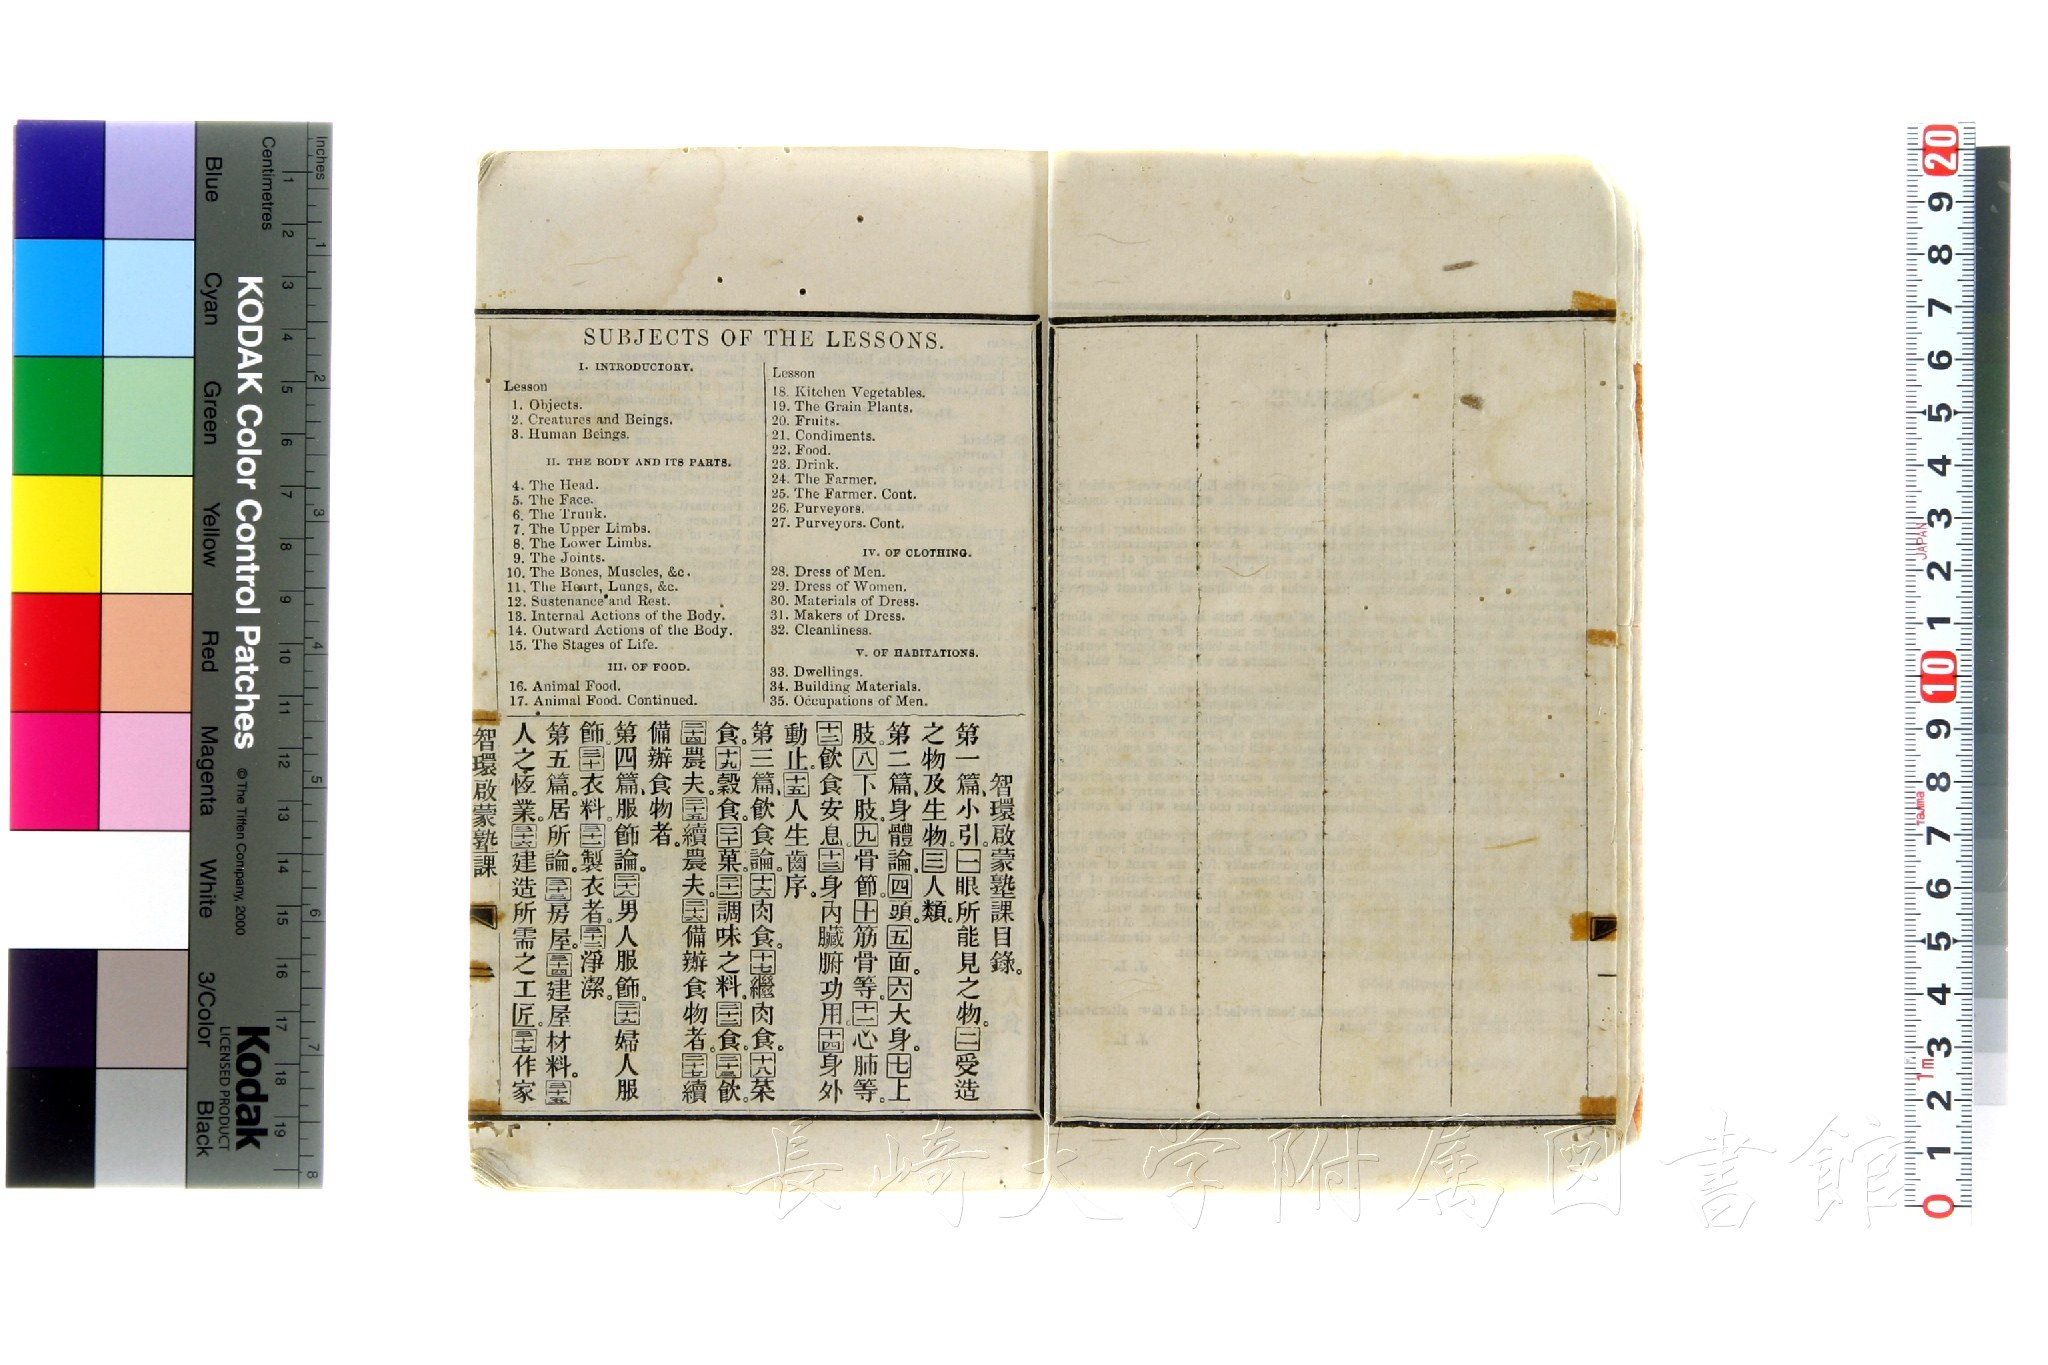 SUBJECTS OF THE LESSONS.
I. INTRODUCTORY.
Lesson
1. Objects.
2. Creatures and Beings.
3. Human Beings.
II. THE BODY AND ITS PARTS.
4. The Head.
5. The Face.
6. The Trunk.
7. The Upper Limbs.
8. The Lower Limbs.
9. The Joints.
10. The Bones, Muscles, &c.
11. The Heart, Lungs, &c.
12. Sustenance and Rest.
13. Internal Actions of the Body.
14. Outward Actions of the Body.
15. The Stages of Life.
III. OF FOOD.
16. Animal Food.
17. Animal Food. Continued.
Lesson
18. Kitchen Vegetables.
19. The Grain Plants.
20. Fruits.
21. Condiments.
22. Food.
23. Drink.
24. The Farmer.
25. The Farmer. Cont.
26. Purveyors.
27. Purveyors. Cont.
IV. OF CLOTHING.
28. Dress of Men.
29. Dress of Women.
30. Materials of Dress.
31. Makers of Dress.
32. Cleanliness.
V. OF HABITATIONS.
33. Dwellings.
34. Building Materials.
35. Occupations of Men.
智環啟蒙塾課目錄。
第一篇、小引。一眼所能見之物。二受造
之物及生物。三人類。
第二篇、身體論。四頭。五面。六大身。七上
肢。八下肢。九骨節。十筋骨等。十一心肺等。
十二飲食安息。十三身內臟腑功用。十四身外
動止。十五人生齒序。
第三篇、飲食論。十六肉食。十七繼肉食。十八菜
食。十九穀食。二十菓。二十一調味之料。二十二食。二十三飲。
二十四農夫。二十五續農夫。二十六備辦食物者。二十七續
備辦食物者。
第四篇、服飾論。二十八男人服飾。二十九婦人服
飾。三十衣料。三十一製衣者。三十二淨潔。
第五篇。居所論。三十三房屋。三十四建屋材料。三十五
人之恆業。三十六建造所需之工匠。三十七作家
智環啟蒙塾課
KODAK Color Control Patches
© The Tiffen Company, 2000
Kodak
LICENSED PRODUCT
Inches
1 2 3 4 5 6 7 8
Centimetres
1 2 3 4 5 6 7 8 9 10 11 12 13 14 15 16 17 18 19
Blue
Cyan
Green
Yellow
Red
Magenta
White
3/Color
Black
20 9 8 7 6 5 4 3 2 1 10 9 8 7 6 5 4 3 2 1 0
JAPAN
Tajima
1m
長崎大学附属図書館